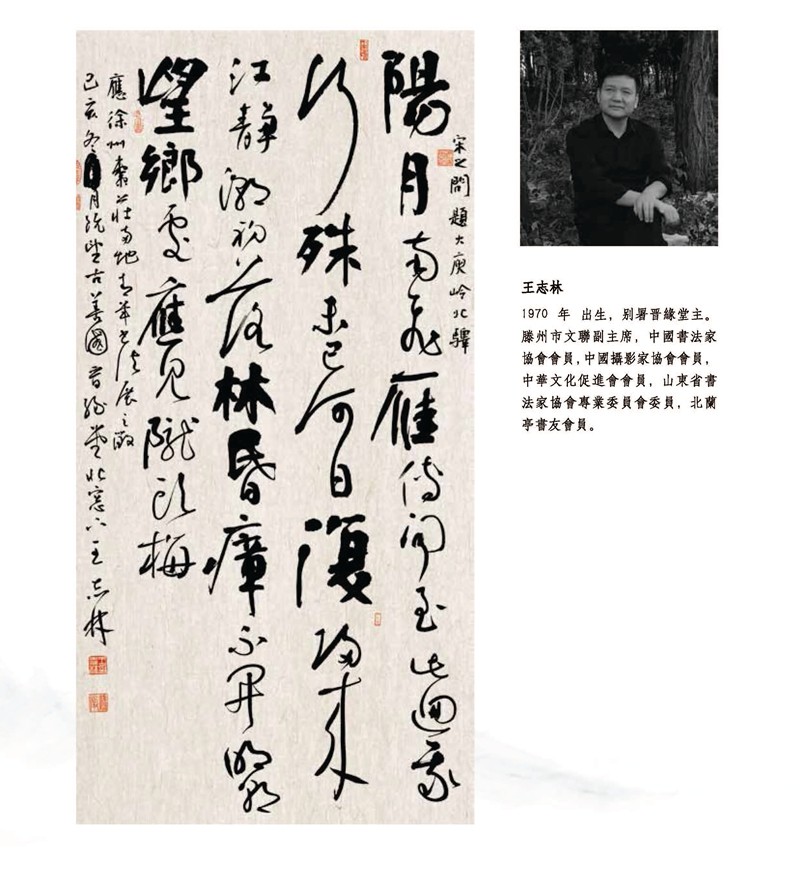 陽月南飛雁傳聞至此迴我
宋之問 題大庾岭北驛
行殊未已何日復歸來
江靜潮初落林昏瘴不開明朝
望鄉處應見隴頭梅
應徐州 展之邀
己亥冬月 古善國晉緣堂北窗下王志林
王志林
1970 年 出生，别署晋緣堂主。
滕州市文聯副主席，中國書法家
協會會員，中國攝影家協會會員，
中華文化促進會會員，山東省書
法家協會專業委員會委員，北蘭
亭書友會員。